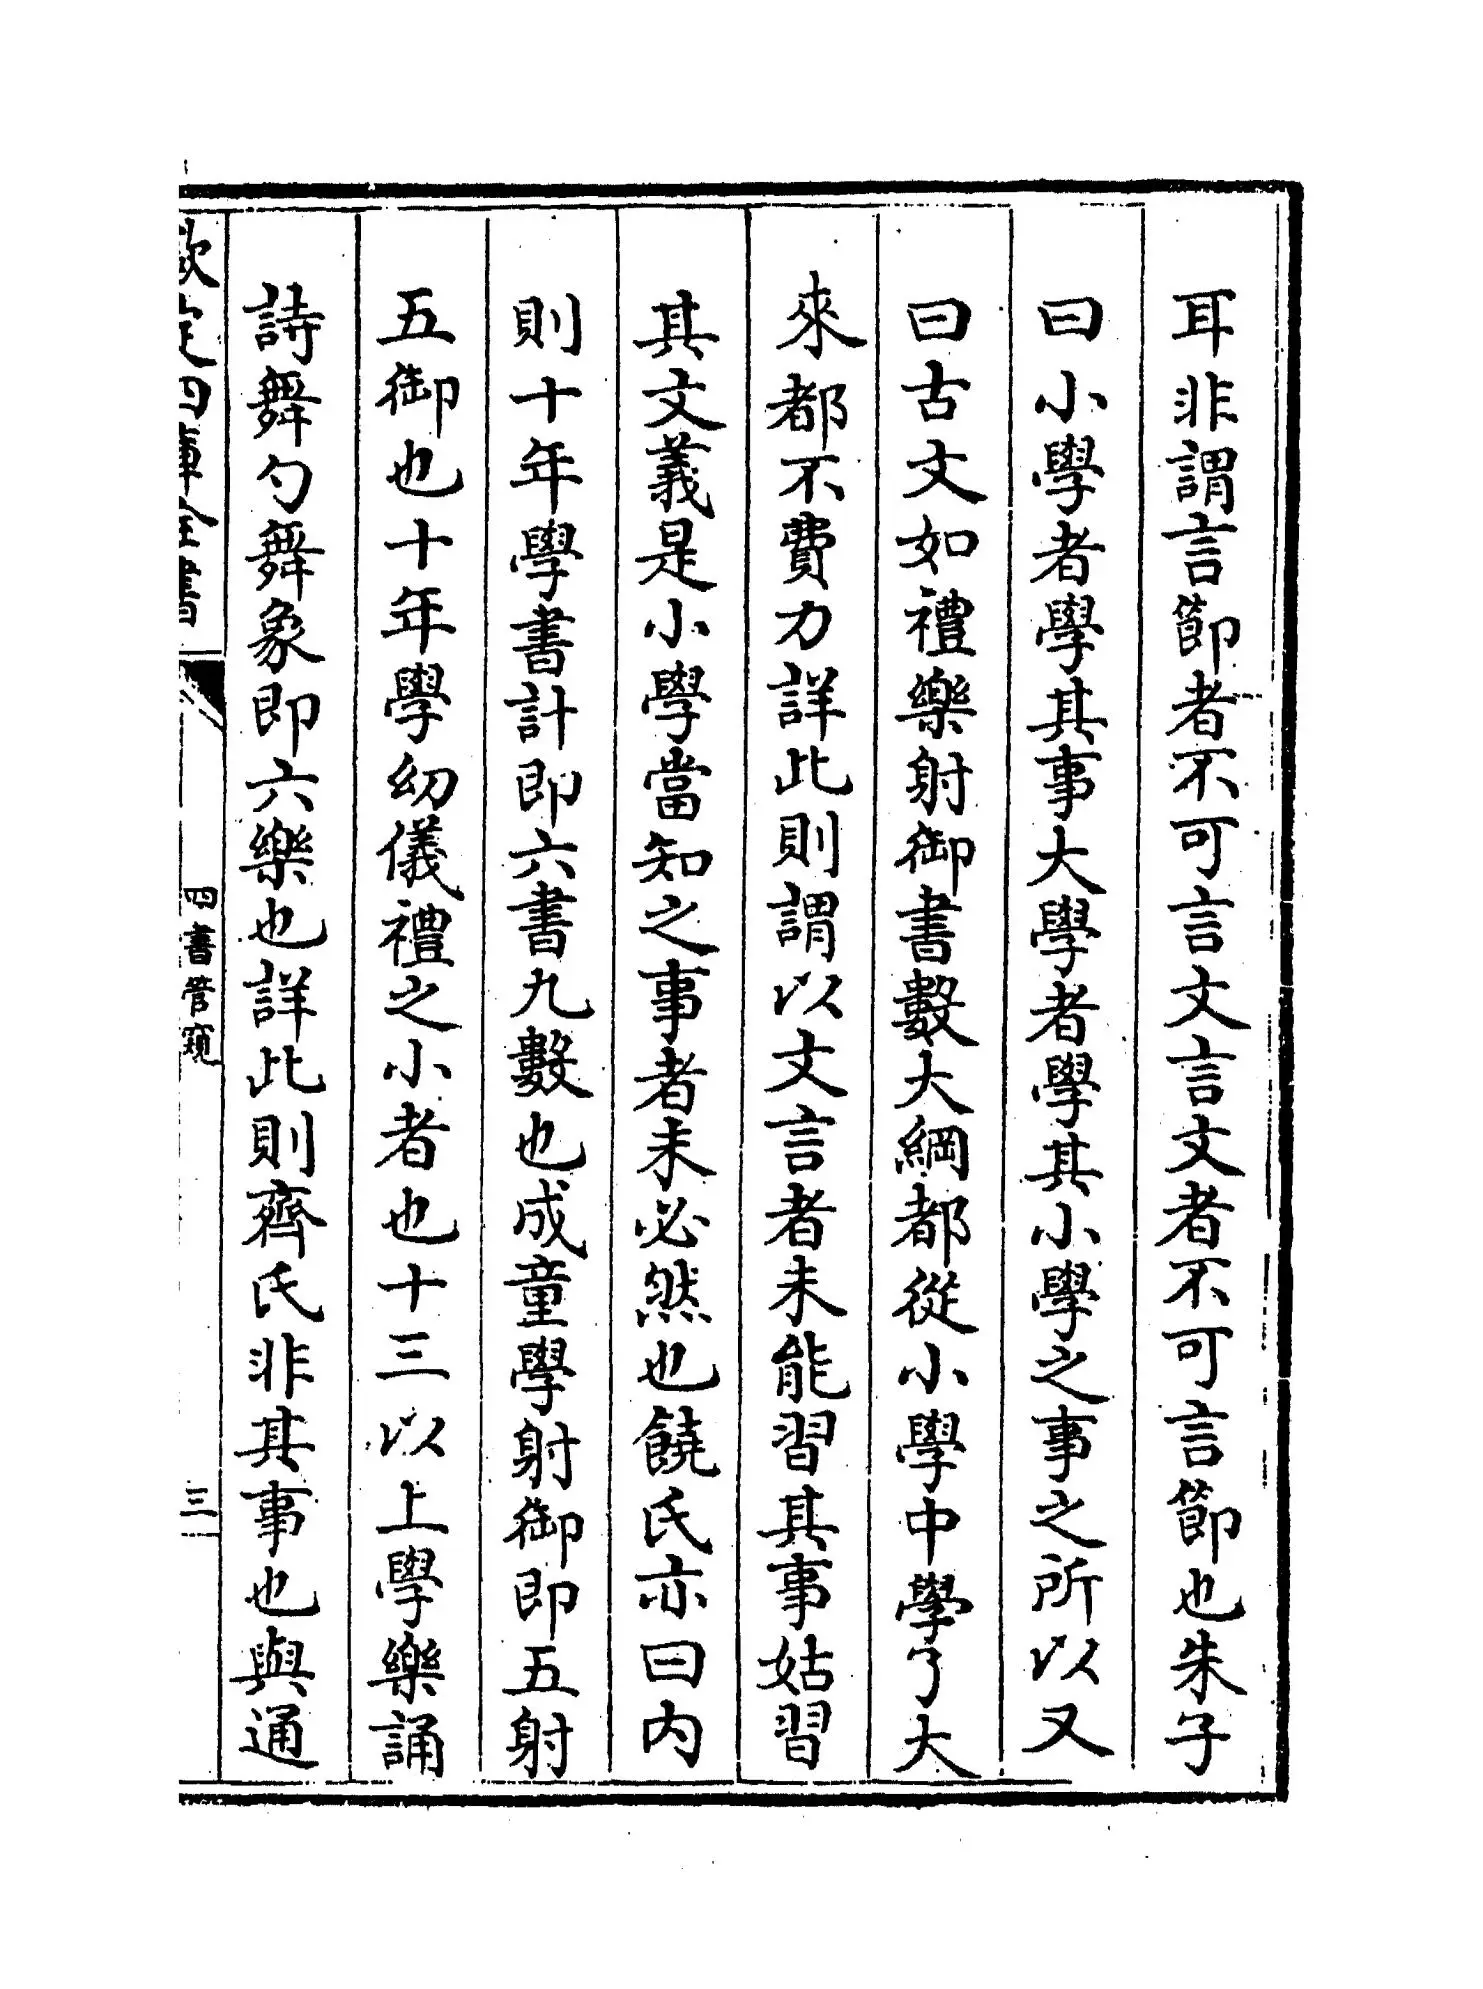 耳非謂言節者不可言文言文者不可言節也朱子
曰小學者學其事大學者學其小學之事之所以又
曰古文如禮樂射御書數大綱都從小學中學了大
來都不費力詳此則謂以文言者未能習其事姑習
其文義是小學當知之事者未必然也饒氏亦曰内
則十年學書計即六書九數也成童學射御即五射
五御也十年學幼儀禮之小者也十三以上學樂誦
詩舞勺舞象即六樂也詳此則齊氏非其事也與通
欽定四庫全書
四書管窺
三